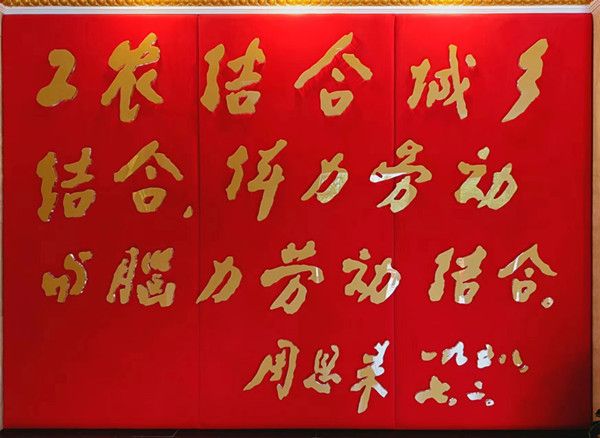 工农结合城乡
结合,体力劳动
与脑力劳动结合。
周恩来 一九五八、
七、六。